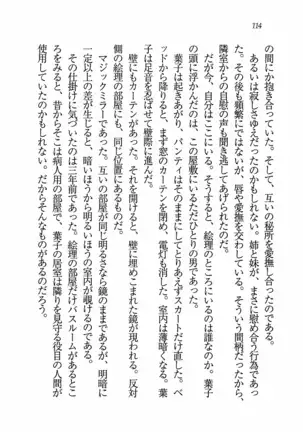 114
の間にか抱き合っていた。そして、互いの秘所を愛撫し合ったのである。
あるいは寂しさゆえだったのかもしれない。姉と妹が、まさに慰め合う行為であって、その後も頻繁にではないが、唇や愛撫を交わしている。そういう間柄だったから、
隣室からの自慰の声も聞き逃してあげられたのだ。
だが今、自分はここにいる。そうすると、絵理のところにいるのは誰なのか。葉子
の頭に浮かんだのは、この屋敷にいるただひとりの男であった。
葉子は起きあがり、パンティはそのままにしてとりあえずスカートだけ直した。ベ
ッドから降りると、まず窓のカーテンを閉め、電灯も消した。室内は薄暗くなる。葉
子は足音を忍ばせて壁際に進んだ。
壁にもカーテンがあった。それを開けると、壁に埋めこまれた鏡が現われる。反対
側の絵理の部屋にも、同じ位置にあるものだ。
マジックミラーであった。互いの部屋が同じ明るさなら鏡のままであるが、明暗に
一定以上の差が生じると、暗いほうから明るいほうの室内が覗けるのである。
その仕掛けに気づいたのは三年前であった。絵理の部屋だけバスルームがあるとこ
ろをみると、昔からそこは病人用の部屋で、葉子の居室は隣りを見守る役目の人間が
使用していたのかもしれない。だからそんなものがあるのだろう。